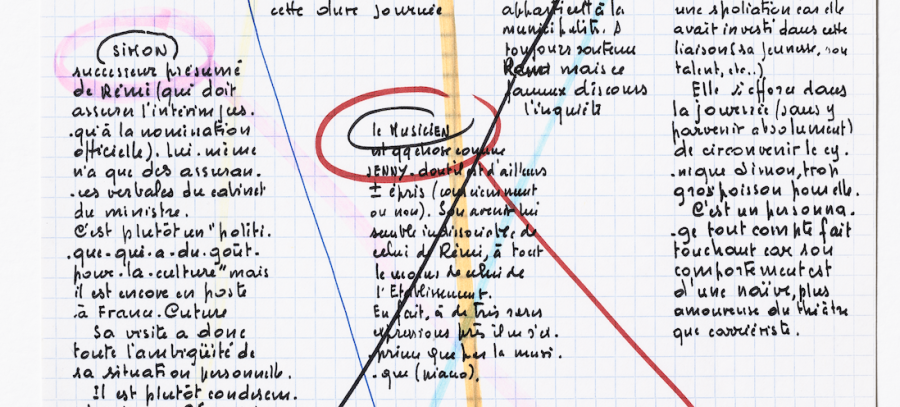 SIMON
successeur présumé
de Rémi (qui doit
assurer l'intérim jus.
.qu'à la nomination
officielle). Lui-même
n'a que des assuran.
.ces verbales du cabinet
du ministre.
C'est plutôt un "politi.
.que-qui-a-du-goût-
pour-la-culture" mais
il est encore en poste
à France-Culture
Sa visite a donc
toute l'ambiguïté de
sa situation personnelle.
Il est plutôt condescen.
cette dure journée
le MUSICIEN
est qq chose comme
JENNY. dont il est d'ailleurs
± épris (consciemment
ou non). Son avenir lui
semble indissociable de
celui de Rémi, à tout
le moins de celui de
l'Etablissement.
En fait, à de très rares
expressions près il ne s'ex.
.prime que par la musi.
.que (piano).
appartient à la
municipalité. A
toujours soutenu
Rémi mais ce
jamais discours
l'inquiète
une spoliation car elle
avait investi dans cette
liaison (sa jeunesse, son
talent, etc..)
Elle s'efforce dans
la journée (sans y
parvenir absolument)
de circonvenir le cy.
.nique Simon, trop
gros poisson pour elle.
C'est un personna.
.ge tout compte fait
touchant car son
comportement est
d'une naïve, plus
amoureuse du théâtre
que carriériste.